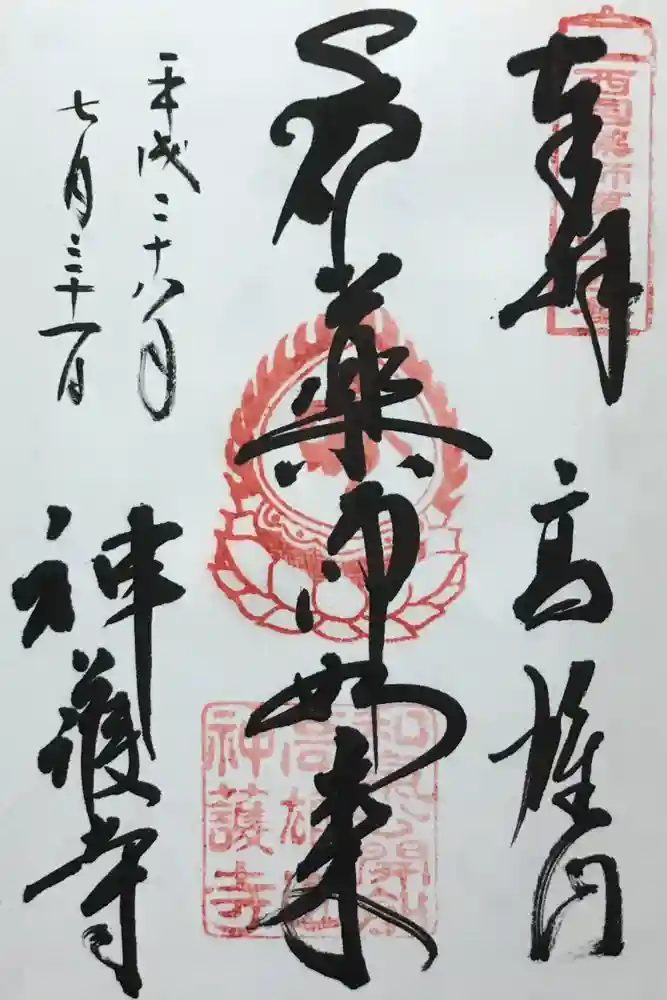 奉拝
高雄山
薬師如来
平成二十八年
七月三十一日
神護寺
西国薬師
和気公開創
高雄山
神護寺